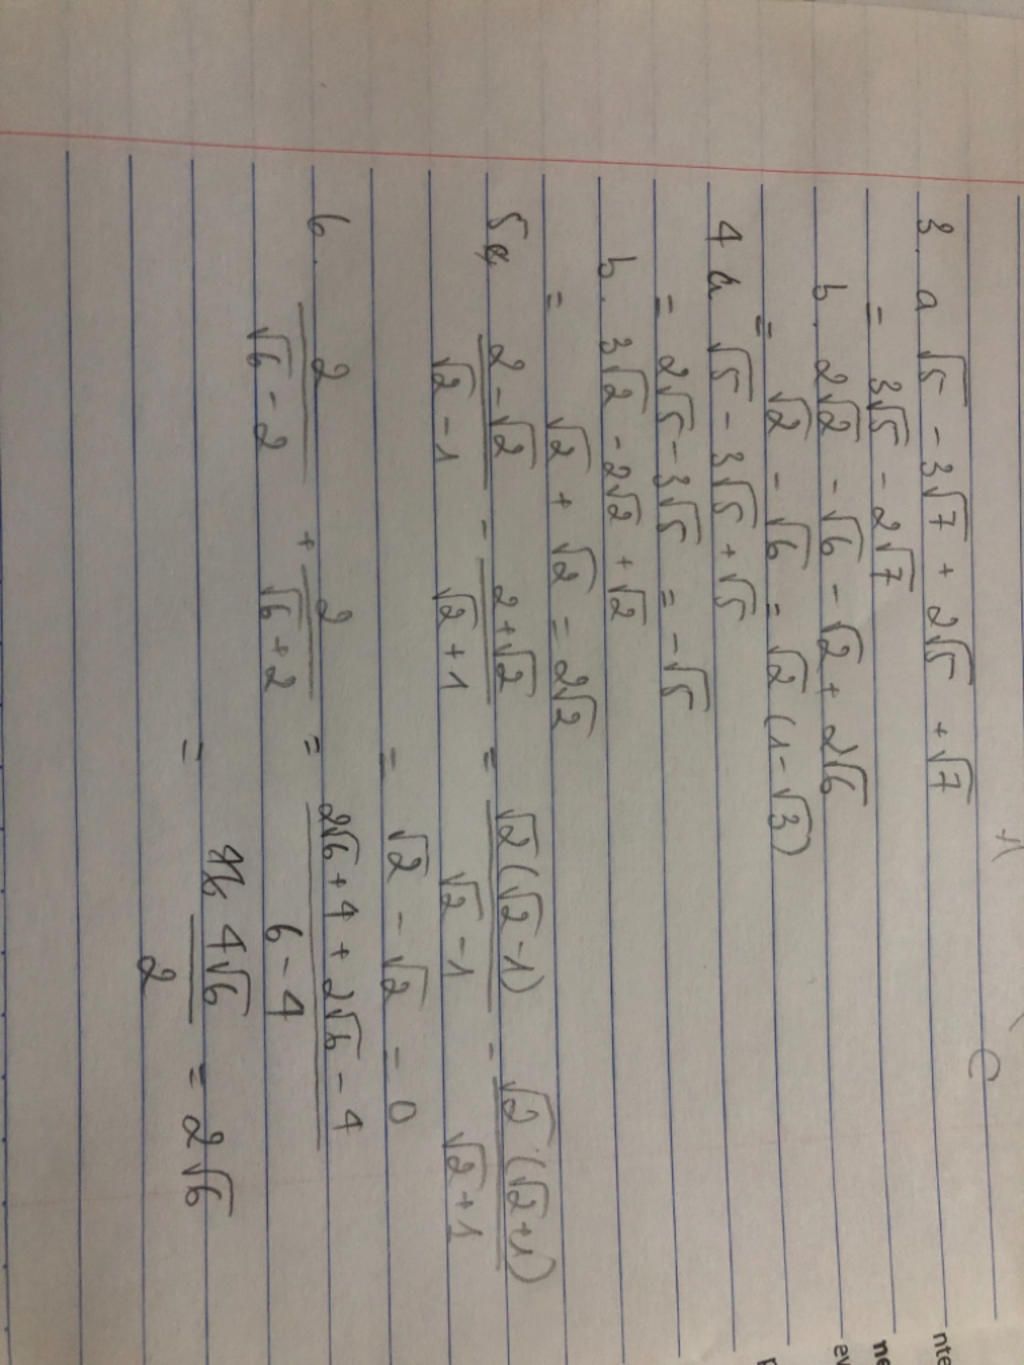 3. a √5 - 3√7 + 2√5 + √7
= 3√5 - 2√7
b. 2√2 - √6 - √2 + 2√6
= √2 - √6 = √2 (1-√3)
4 a √5 - 3√5 + √5
= 2√5 - 3√5 = -√5
b. 3√2 - 2√2 + √2
= √2 + √2 = 2√2
5a, (2-√2)/(√2-1) - (2+√2)/(√2+1) = √2(√2-1)/(√2-1) - √2(√2+1)/(√2+1)
= √2 - √2 = 0
6. 2/(√6-2) + 2/(√6+2) = (2√6+4+2√6-4)/(6-4)
= 4√6/2 = 2√6